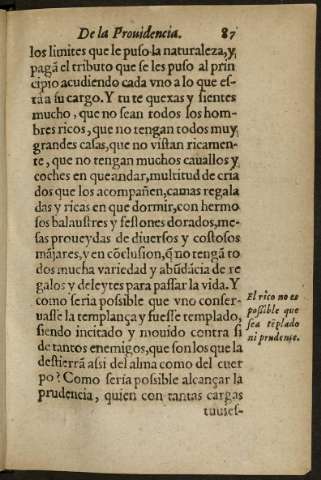 De la Prouidencia. 87
los limites que le puso la naturaleza, y,
pagã el tributo que se les puso al prin
cipio acudiendo cada vno a lo que es-
tà a su cargo. Y tu te quexas y sientes
mucho, que no sean todos los hom-
bres ricos, que no tengan todos muy
grandes casas, que no vistan ricamen-
te, que no tengan muchos cauallos y
coches en que andar, multitud de cria
dos que los acompañen, camas regala
das y ricas en que dormir, con hermo
sos balaustres y festones dorados, me-
sas proueydas de diuersos y costosos
mãjares, y en cõclusion, q̃ no tengã to
dos mucha variedad y abũdãcia de re
galos y deleytes para passar la vida. Y
como seria possible que vno conser-
uasse la templança y fuesse templado,
siendo incitado y mouido contra si
de tantos enemigos, que son los que la
destierrã assi del alma como del cuer
po? Como seria possible alcançar la
prudencia, quien con tantas cargas
tuuies-
El rico no es
possible que
sea tẽplado
ni prudente.